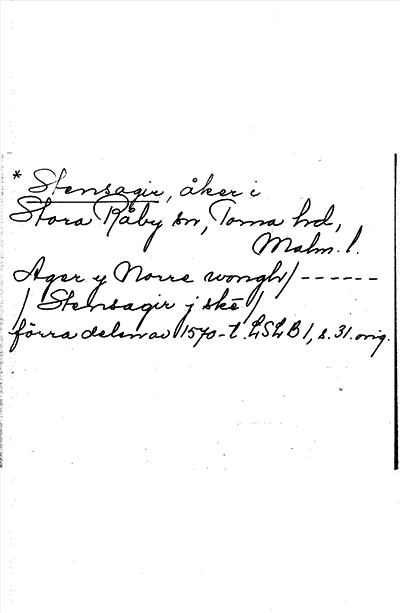 * Stensagir, åker i
Stora Råby sn, Torna hd,
Malm. l.
Ager y Norre wongh / ------
/ Stensagir j skē /
förra delen av 1570-t. LSLB 1, s. 31. orig.